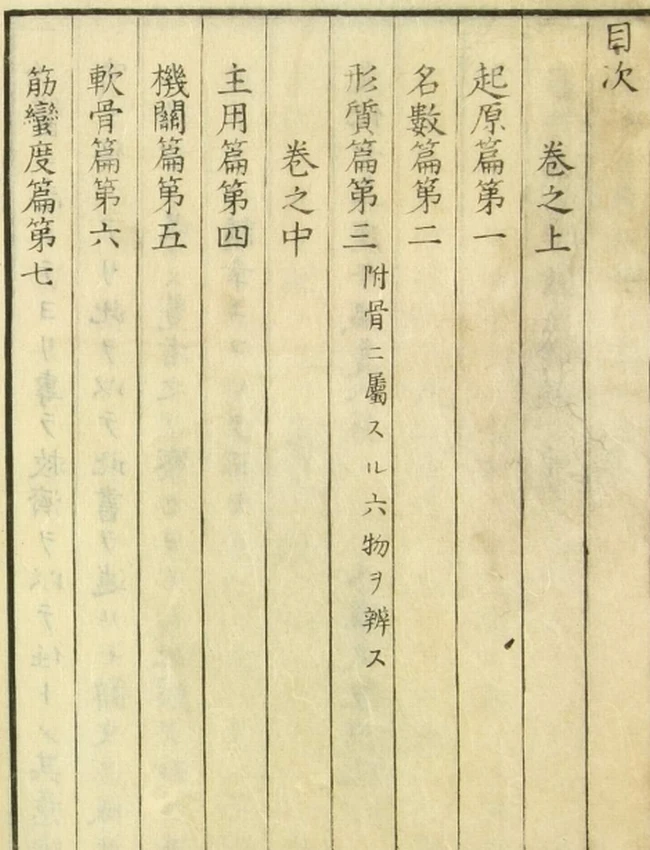 目次
巻之上
起原篇第一
名數篇第二
形質篇第三 附骨ニ屬スル六物ヲ辨ス
巻之中
主用篇第四
機關篇第五
軟骨篇第六
筋蠻度篇第七